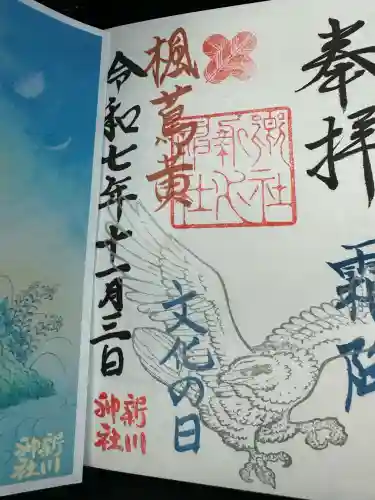 奉拝
霜降
楓蔦黄
文化の日
令和七年十一月三日
新川
神社
新川
神社